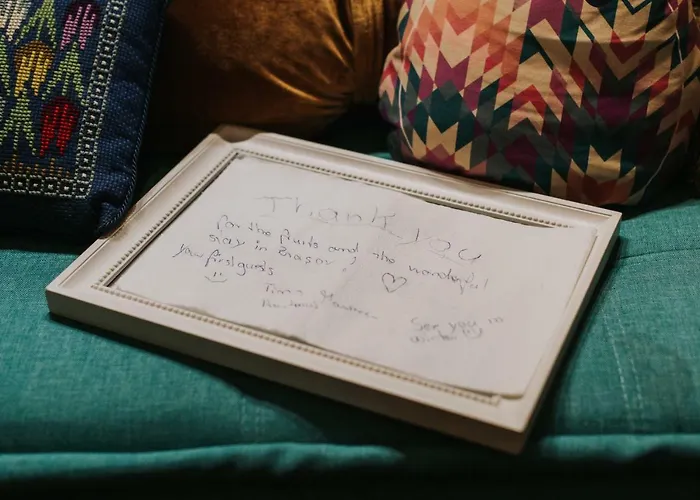 Thank you
for the fruits and the wonderful
stay in Brasov!
your first guests
See you in
winter